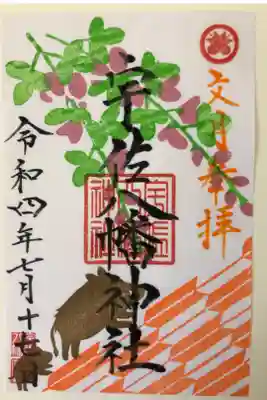 文月奉拝
宇佐八幡神社
令和四年七月十七日